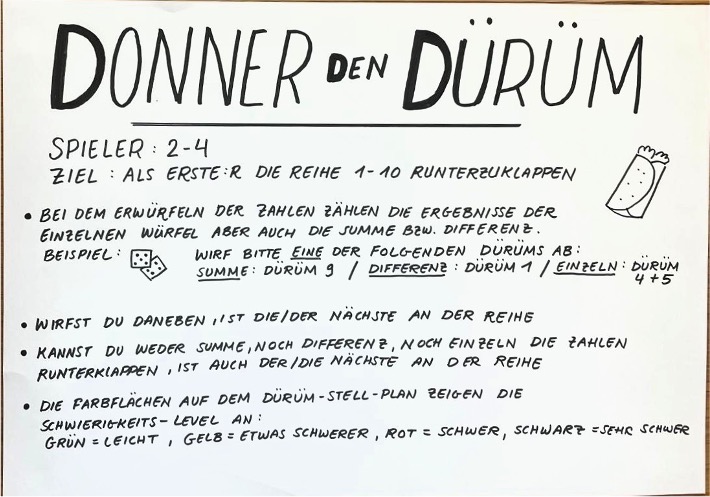 DONNER DEN DÜRÜM
SPIELER : 2-4
ZIEL : ALS ERSTE:R DIE REIHE 1-10 RUNTERZUKLAPPEN
• BEI DEM ERWÜRFELN DER ZAHLEN ZÄHLEN DIE ERGEBNISSE DER
EINZELNEN WÜRFEL ABER AUCH DIE SUMME BZW. DIFFERENZ.
BEISPIEL : WIRF BITTE EINE DER FOLGENDEN DÜRÜMS AB:
SUMME : DÜRÜM 9 / DIFFERENZ : DÜRÜM 1 / EINZELN : DÜRÜM
4+5
• WIRFST DU DANEBEN , IST DIE/DER NÄCHSTE AN DER REIHE
• KANNST DU WEDER SUMME, NOCH DIFFERENZ, NOCH EINZELN DIE ZAHLEN
RUNTERKLAPPEN , IST AUCH DER/DIE NÄCHSTE AN DER REIHE
• DIE FARBFLÄCHEN AUF DEM DÜRÜM-STELL-PLAN ZEIGEN DIE
SCHWIERIGKEITS-LEVEL AN:
GRÜN = LEICHT , GELB = ETWAS SCHWERER , ROT = SCHWER, SCHWARZ = SEHR SCHWER